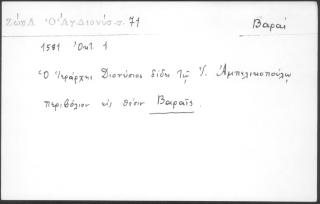 Ζώη Λ Ὁ Ἁγ. Διονύσ. σ. 71 Βαραί
1581 Ὀκτ. 1
Ὁ Ἱεράρχης Διονύσιος δίδει τῷ Ἀμπελικοπούλῳ
περιβόλιον εἰς θέσιν Βαραῖς.